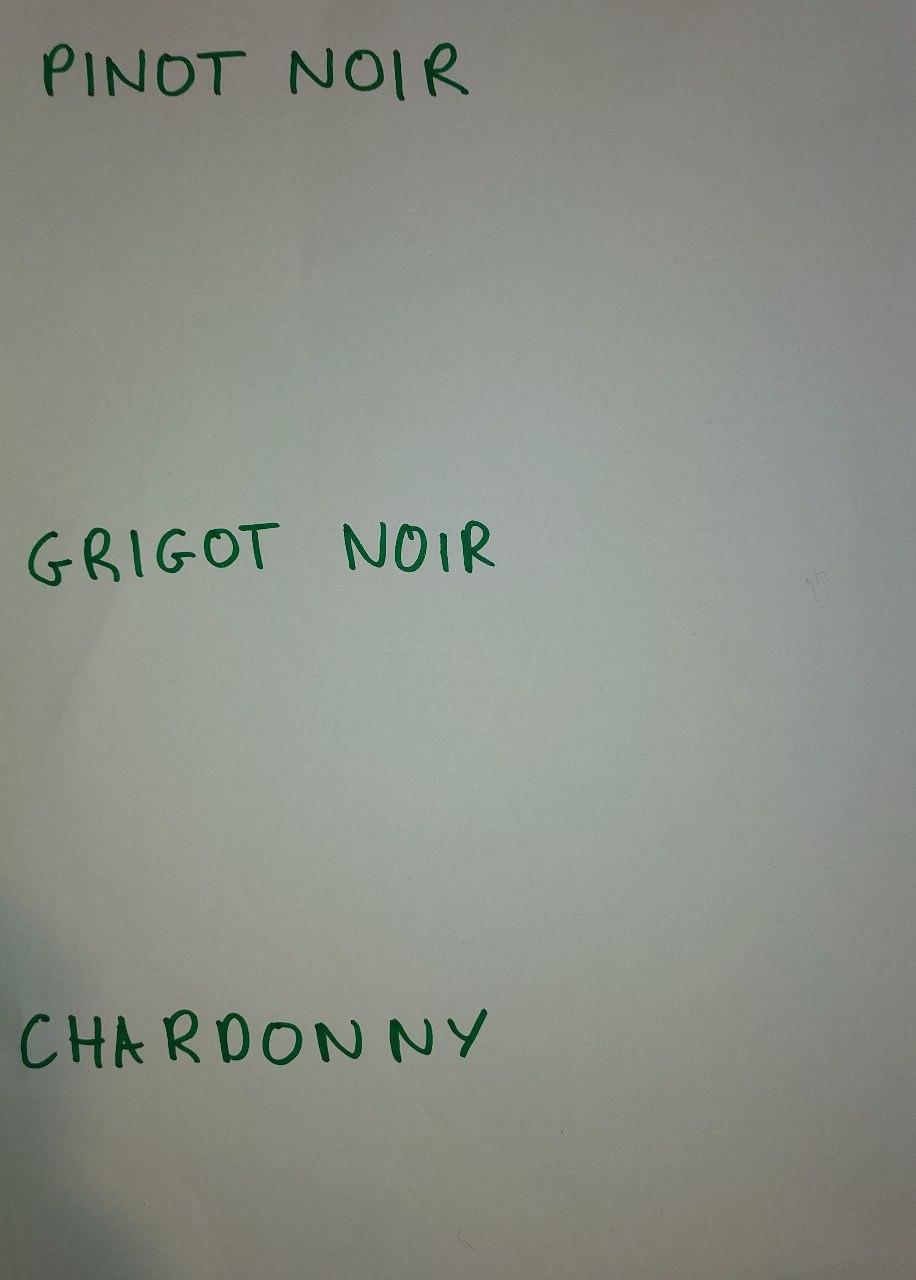 PINOT NOIR
GRIGOT NOIR
CHARDONNY